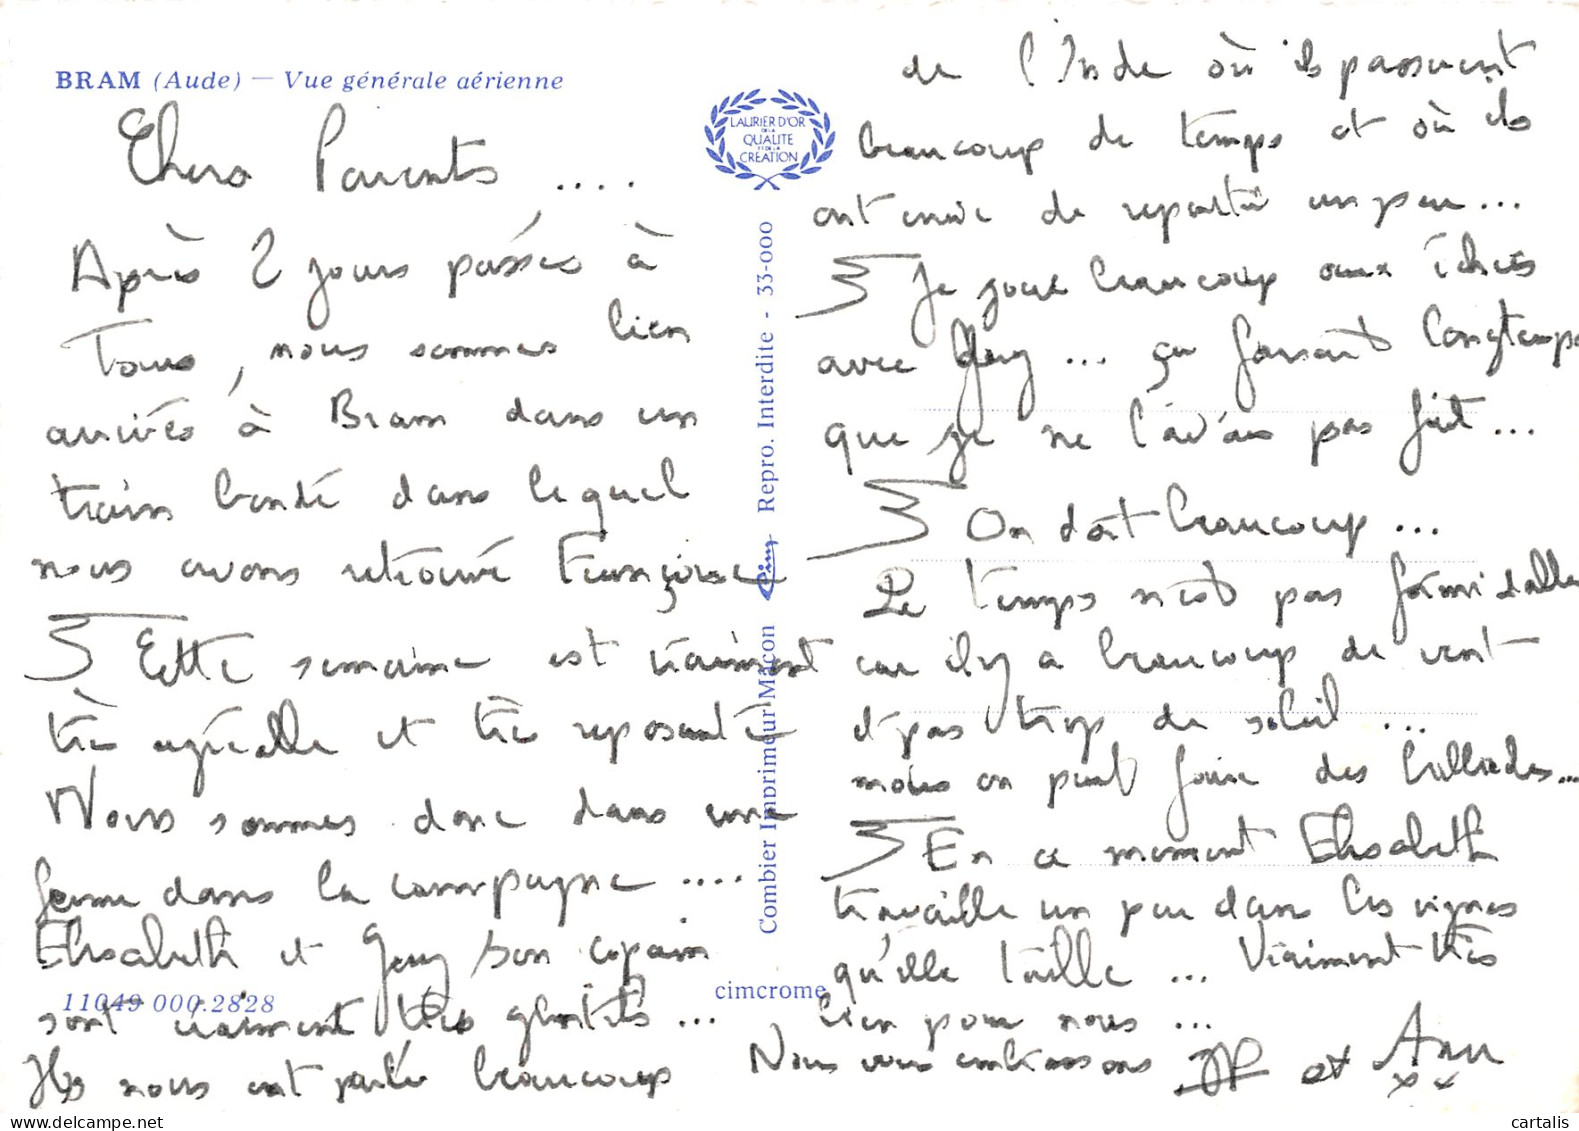 BRAM (Aude) — Vue générale aérienne
Chers Parents ....
Après 2 jours passés à
Tours, nous sommes bien
arrivés à Bram dans un
train bondé dans lequel
nous avons retrouvé Françoise
Cette semaine est vraiment
très agréable et très reposante
Nous sommes donc dans une
ferme dans la campagne ....
Elisabeth et son copain
sont vraiment très gentils ...
Ils nous ont parlé beaucoup
11049 000.2828
LAURIER D'OR
DE LA
QUALITE
ET DE LA
CREATION
Combier Imprimeur Mâcon Cim Repro. Interdite - 33-000
cimcrome
de l'Inde où ils passèrent
beaucoup de temps et où ils
ont envie de repartir un peu...
Je joue beaucoup aux échecs
avec ... ça faisait longtemps
que je ne l'avais pas fait...
On dort beaucoup...
Le temps n'est pas formidable
car il y a beaucoup de vent
et pas trop de soleil ...
mais on peut faire des ballades...
En ce moment Elisabeth
travaille un peu dans les vignes
qu'elle taille ... Vraiment très
bien pour nous ...
Nous vous embrassons JP et Ann
x x
cartalis